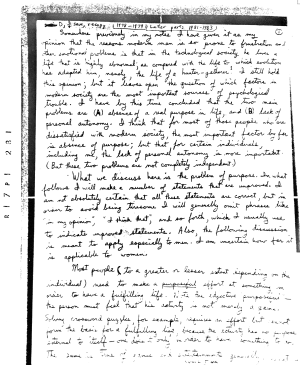 Somewhere previously in my notes I have given it as my
opinion that the reasons modern man is so prone to frustration and
other emotional problems is that in the technological society he lives a
life that is highly abnormal, as compared with the life to which evolution
has adapted him, namely, the life of a hunter-gatherer. I still hold
this opinion; but it leaves open the question of which factors in
modern society are the most important sources of psychological
trouble. I have by this time concluded that the two main
problems are (A) absence of a real purpose in life, and (B) lack of
personal autonomy. I think that for most of those people who are
dissatisfied with modern society, the most important factor by far
is absence of purpose; but that for certain individuals,
including me, the lack of personal autonomy is more important.
(But these two problems are not completely independent.)
What we discuss here is the problem of purpose. In what
follows I will make a number of statements that are unproved. I
am not absolutely certain that all these statements are correct, but in
order to avoid being tiresome I will generally omit phrases like
"in my opinion," "I think that," and so forth, which I usually use
to indicate unproved statements. Also, the following discussion
is meant to apply especially to men. I am uncertain how far it
is applicable to women.
Most people (to a greater or lesser extent depending on the
individual) need to make a purposeful effort at something in
order to have a fulfilling life.
the person must feel that his activity is not merely a game.
Solving crossword puzzles for example, requires an effort but cannot
form the basis for a fulfilling life, because the activity has no purpose